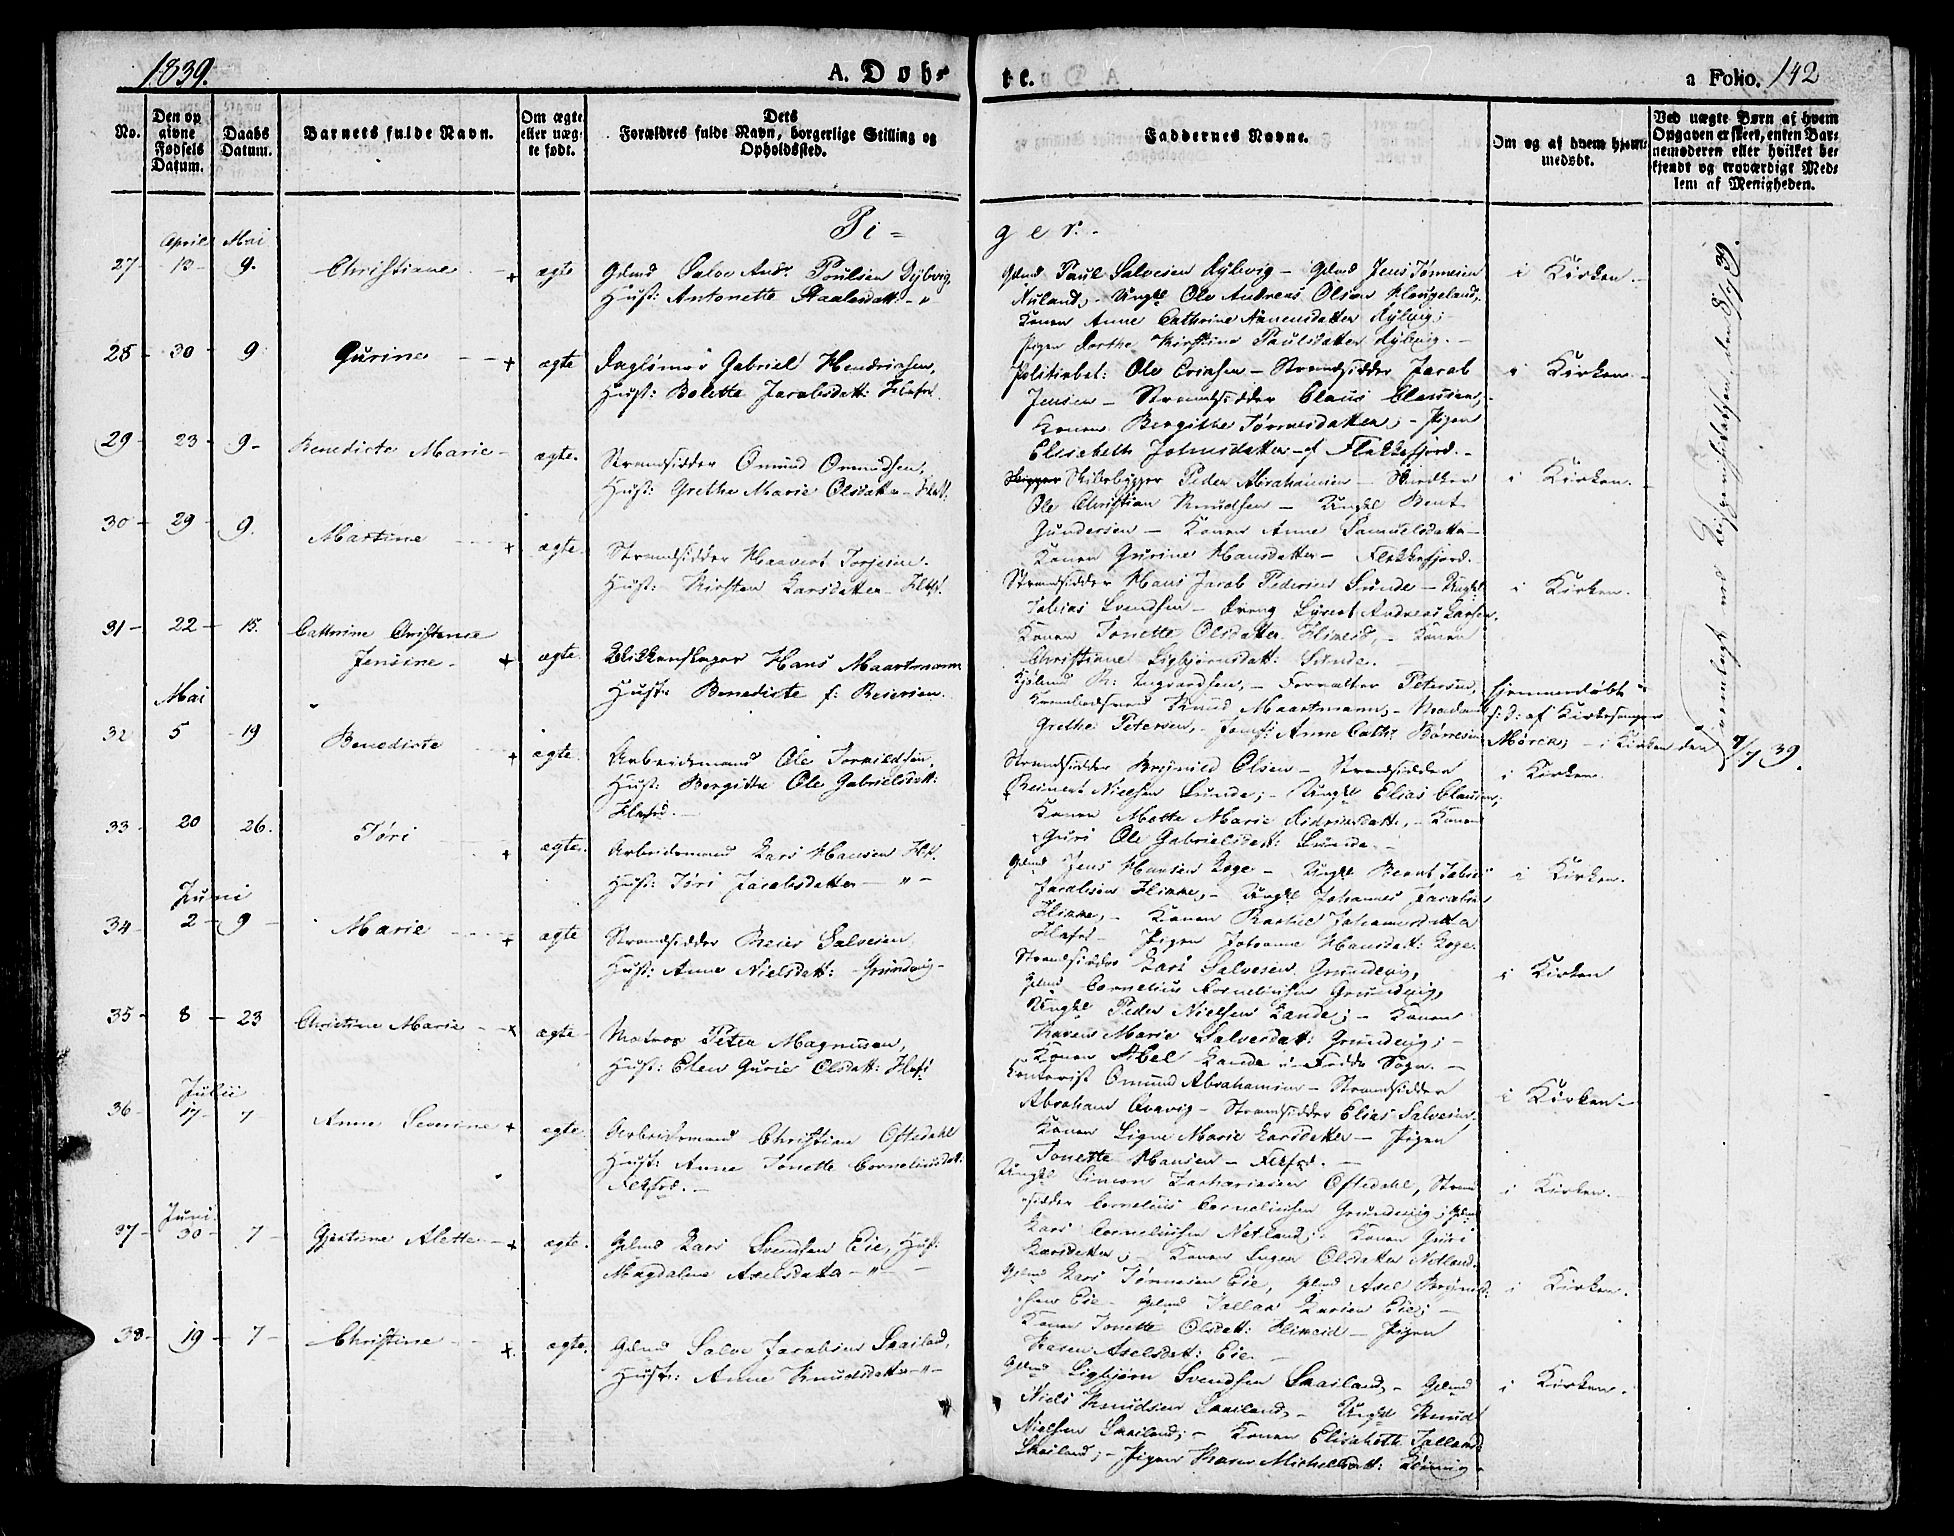 1839.
A. Døb-
te.
a Folio. 142
No.
Den op
givne
Fødsels
Datum.
Daabs
Datum.
Barnets fulde Navn.
Om ægte
eller uæg-
te født.
Dets
Forældres fulde Navn, borgerlige Stilling og
Opholdssted.
Faddernes Navne.
Om og af hvem hjem-
medøbt.
Ved uægte Børn af hvem
Opgaven er skeet, enten Bar-
nemoderen eller hvilket be-
kjendt og troværdigt Med-
lem af Menigheden.
Pi =
ger. -
April Mai
27 - 13 - 9. Christiane. + ægte Gdmd Salve Andr. Poulsen Dybvig,
Hust: Antonette Staalesdatt - "
Gdmd Paul Salvesen Dybvig - Gdmd Jens Tønnesen
Nuland; - Ungkl Ole Andreas Olsen Haugeland,
Konen Anne Cathrine Nanensdatter Dybvig;
Pigen Dorthe Kirstine Paulsdatter Dybvig. -
i Kirken. -
28 - 30 - 9 Gurine - + ægte Dagløner Gabriel Hendrichsen,
Hust: Bolette Jacobsdatt:
Politiebet: Ole Erichsen - Strandsidder Jacob
Jensen - Strandsidder Claus Clausen,
Konen Bergithe Tørresdatter; - Pigen
Elisebeth Johnsdatter - af Flekkefjord. -
i Kirken. -
29 - 23 - 9 - Benedicte Marie - ægte. Strandsidder Omund Omundsen,
Hust: Grethe Marie Olsdatter -
Skibsbygger Peder Abrahamsen -
Ole Christian Knudsen - Ungkl Bent
Gundersen - Konen Anne Samuelsdatter -
Konen Gurine Hansdatter - Flekkefjord.
i Kirken. -
30 - 29 - 9. Martine + ægte. Strandsidder Haavert Torjesen.
Hust: Kirsten Larsdatter -
Strandsidder Hans Jacob Pedersen Sunde - Ungkl
Tobias Svendsen - Dreng Sivert Andreas Larsen,
Konen Tonette Olsdatter - Konen
Christiane Sigbjørnsdatt: Sunde. -
i Kirken.
31 - 22 - 15. Cathrine Christense
Jensine - + ægte. Blikkenslager Hans Maartmann
Hust: Benedicte f: Reiersen.
Forvalter Petersen,
Knud Maartmann, - Madam
Grethe Petersen, - Jomf: Anne Cath: Børresen
hjemmedøbt
s: d: af Kirkesanger
Mørch; - i Kirken den 7/7 39.
Mai
32 5 - 19 Benedicte + ægte. Arbeidsmand Ole Tormodsen,
Hust: Bergitte Ole Gabrielsdatt:
Strandsidder Brynild Olsen - Strandsidder
Reinert Nielsen Sunde; - Ungkl Elias Clausen;
Konen Mette Marie Didriksdatt:, - Konen
Guri Ole Gabrielsdatt: Sunde. -
i Kirken.
33 20 26. Tøri + ægte. Arbeidsmand Lars Hansen
Hust: Tøri Jacobsdatter - " -
Gdmd Jens Hansen Loge - Ungkl Bernt Tobias
Jacobsen - Ungkl Johannes Jacobsen
Konen Rachel Johannesdatter
Pigen Johanne Hansdatt: Loge.
i Kirken.
Juni
34 - 2 - 9 - Marie + ægte Strandsidder Reier Salvesen,
Hust: Anne Nielsdatt: Grundvig -
Strandsidder Lars Salvesen Grundvig,
Gdmd Cornelius Corneliusen Grundvig,
Ungkl Peder Nielsen Lande; - Konen
Karen Marie Salvesdatt: Grundvig; -
Konen Abel Lande i Fedde Sogn. -
i Kirken
35 - 8 - 23 Christine Marie - + ægte - Matros Peter Magnusen,
Hust: Elen Gurie Olsdatt:
Contorist Omund Abrahamsen - Strandsidder
Abraham Qvavig - Strandsidder Elias Salvesen.
Konen Signe Marie Larsdatter - Pigen
Tonette Hansen - Flkfd. -
i Kirken -
Julii
36 - 17 - 7 Anne Severine + ægte. Arbeidsmand Christian Oftedahl
Hust: Anne Tonette Corneliusdat:
Flkfd. -
Ungkl Simon Zachariasen Oftedahl, Strand
sidder Cornelius Corneliusen Grundvig; Gdmd
Lars Corneliusen Netland; Konen Guri
Larsdatter; - Konen Inger Olsdatter Netland.
i Kirken. -
Juni
37 - 30 - 7 - Gjertine Alette - + ægte. Gdmd Lars Svendsen Eie, Hust:
Magdalene Axelsdatter - " -
Gdmd Lars Tønnesen Eie, Gdmd Axel
Eie - Gdmd Tallak Larsen Eie; -
Konen Tonette Olsdatt: - Pigen
Karen Axelsdatt: Eie. -
i Kirken.
38 - 19 - 7 - Christine - + ægte. Gdmd Salve Jacobsen Skailand,
Hust: Anne Knudsdatter - " -
Gdmd Sigbjørn Svendsen Skailand, - Gdmd
Niels Knudsen Skailand, - Ungkl Knud
Nielsen Skailand; - Konen Elisabeth Tallaks
Skailand; - Pigen Karen Michelsdatt:
i Kirken.